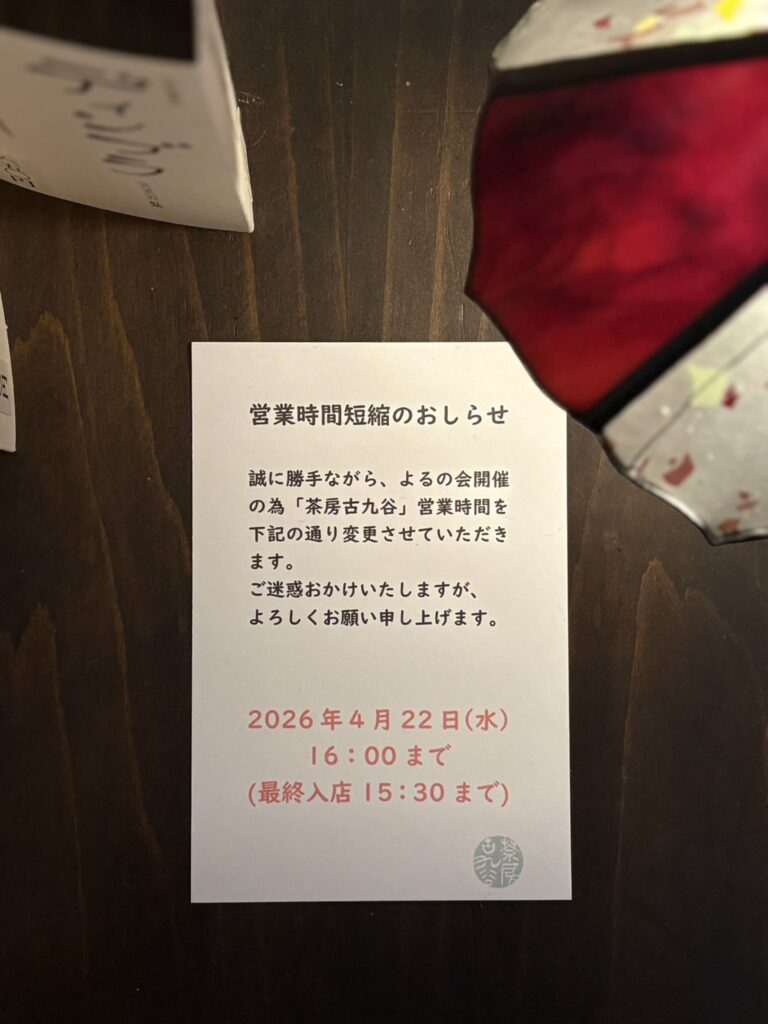 営業時間短縮のおしらせ
誠に勝手ながら、よるの会開催
の為「茶房古九谷」営業時間を
下記の通り変更させていただき
ます。
ご迷惑おかけいたしますが、
よろしくお願い申し上げます。
2026年4月22日(水)
16：00まで
(最終入店 15：30まで)
茶房
古九谷